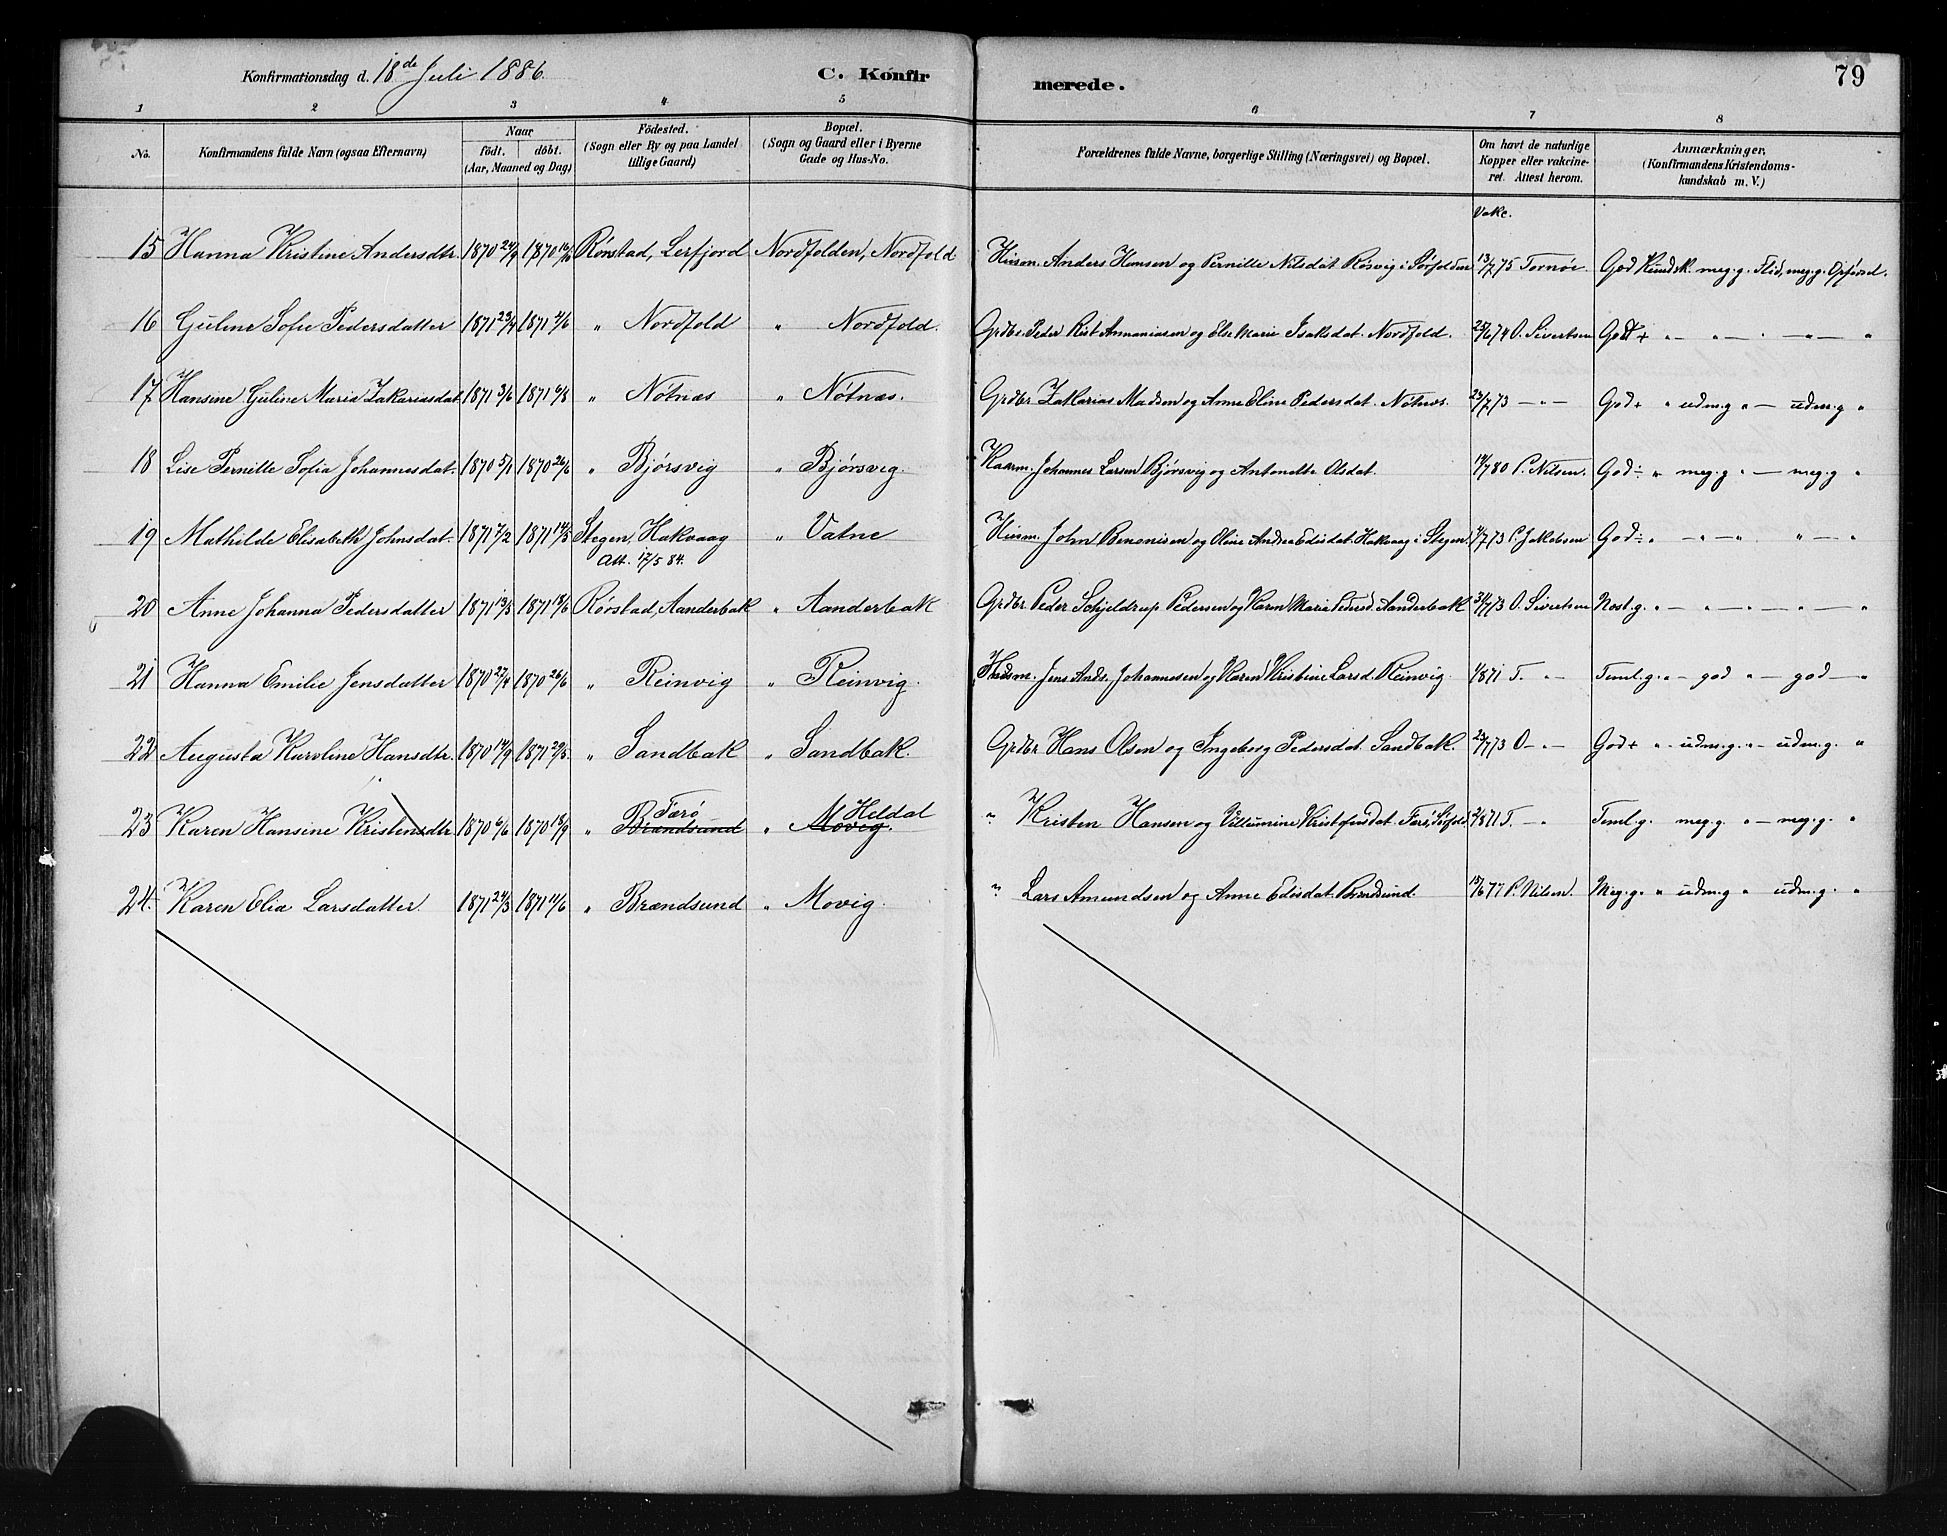 Konfirmationsdag d. 18de Juli 1886. C. Konfirmerede. 79
1 2 3 4 5 6 7 8
No. Konfirmandens fulde Navn (ogsaa Efternavn) Naar födt. döbt. (Aar, Maaned og Dag) Födested. (Sogn eller By og paa Landet tillige Gaard) Bopæl. (Sogn og Gaard eller i Byerne Gade og Hus-No. Forældrenes fulde Navne, borgerlige Stilling (Næringsvei) og Bopæl. Om havt de naturlige Kopper eller vakcineret. Attest herom. Anmærkninger, (Konfirmandens Kristendomskundskab m. V.)
Vakc.
15 Hanna Kristine Andersdtr. 1870 24/9 1870 16/10 Rørstad, Lerfjord Nordfolden, Nordfold Husm. Anders Hansen og Pernille Nilsdat. Røsvig i Sørfolden 13/7 75 Tornøe. God Kundsk. meg. g. Flid, meg. g. Opførsel.
16 Guline Sofie Pedersdatter 1871 23/4 1871 4/6 " Nordfold " Nordfold. Grdbr. Peder Krist. Annaniasen og Else Marie Isaksdat. Nordfold. 25/6 74 O. Sivertsen Godt + " — " — " — "
17 Hansine Guline Maria Zakariasdat. 1871 3/6 1871 6/8 " Nøtnæs " Nøtnæs. Grdbr Zakarias Madsen og Anne Eline Pedersdat. Nøtnæs. 23/7 73 — " — God + " udm. g " — udm. g "
18 Lise Pernille Sofia Johannesdat. 1870 5/1 1870 26/6 " Bjørsvig " Bjørsvig. Kaarm. Johannes Larsen Bjørsvig og Antonette Olsdat. 14/7 80 P. Nilsen. God ÷ " meg. g " — meg. g "
19 Mathilde Elisabeth Johnsdat. 1871 7/2 1871 14/5 Stegen, Hakvaag " Vatne Husm. John Benonisen og Oline Andrea Edisdat. Hakvaag i Stegen. 4/7 73 P. Jakobsen God ÷ " — " — " — "
Att. 12/5 84.
20 Anne Johanna Pedersdatter 1871 13/3 1871 18/6 Rørstad, Aanderbak " Aanderbak Grdbr Peder Schjeldrup Pedersen og Karen Marie Pedersd. Aanderbak 31/7 73 O. Sivertsen Nost. g. " — " — " — "
21 Hanna Emilie Jensdatter 1870 27/4 1870 26/6 " Reinvig " Reinvig. Husm. Jens Ands. Johannesen og Karen Kristine Larsd. Reinvig. 1/8 71 T. " — Teml. g. " — god " — god — "
22 Augusta Karoline Hansdtr. 1870 14/9 1871 29/5 " Sandbak " Sandbak Grdbr Hans Olsen og Ingeborg Pedersdat. Sandbak. 23/7 73 O — " — God + " udm. g. " — udm. g. "
Færø Heldal
23 Karen Hansine Kristensdtr. 1870 6/6 1870 18/9 " Brændsund " Movig. " Kristen Hansen og Villumine Kristofersdat. Færø, Sørfold. 2/8 71 T. — " Teml. g. meg. g. " — meg. g. "
24. Karen Elia Larsdatter. 1871 24/3 1871 11/6 " Brændsund " Movig. " Lars Amundsen og Anne Edisdat. Brændsund. 15/6 77 P. Nilsen. Meg. g. " udm. g " udm. g. "